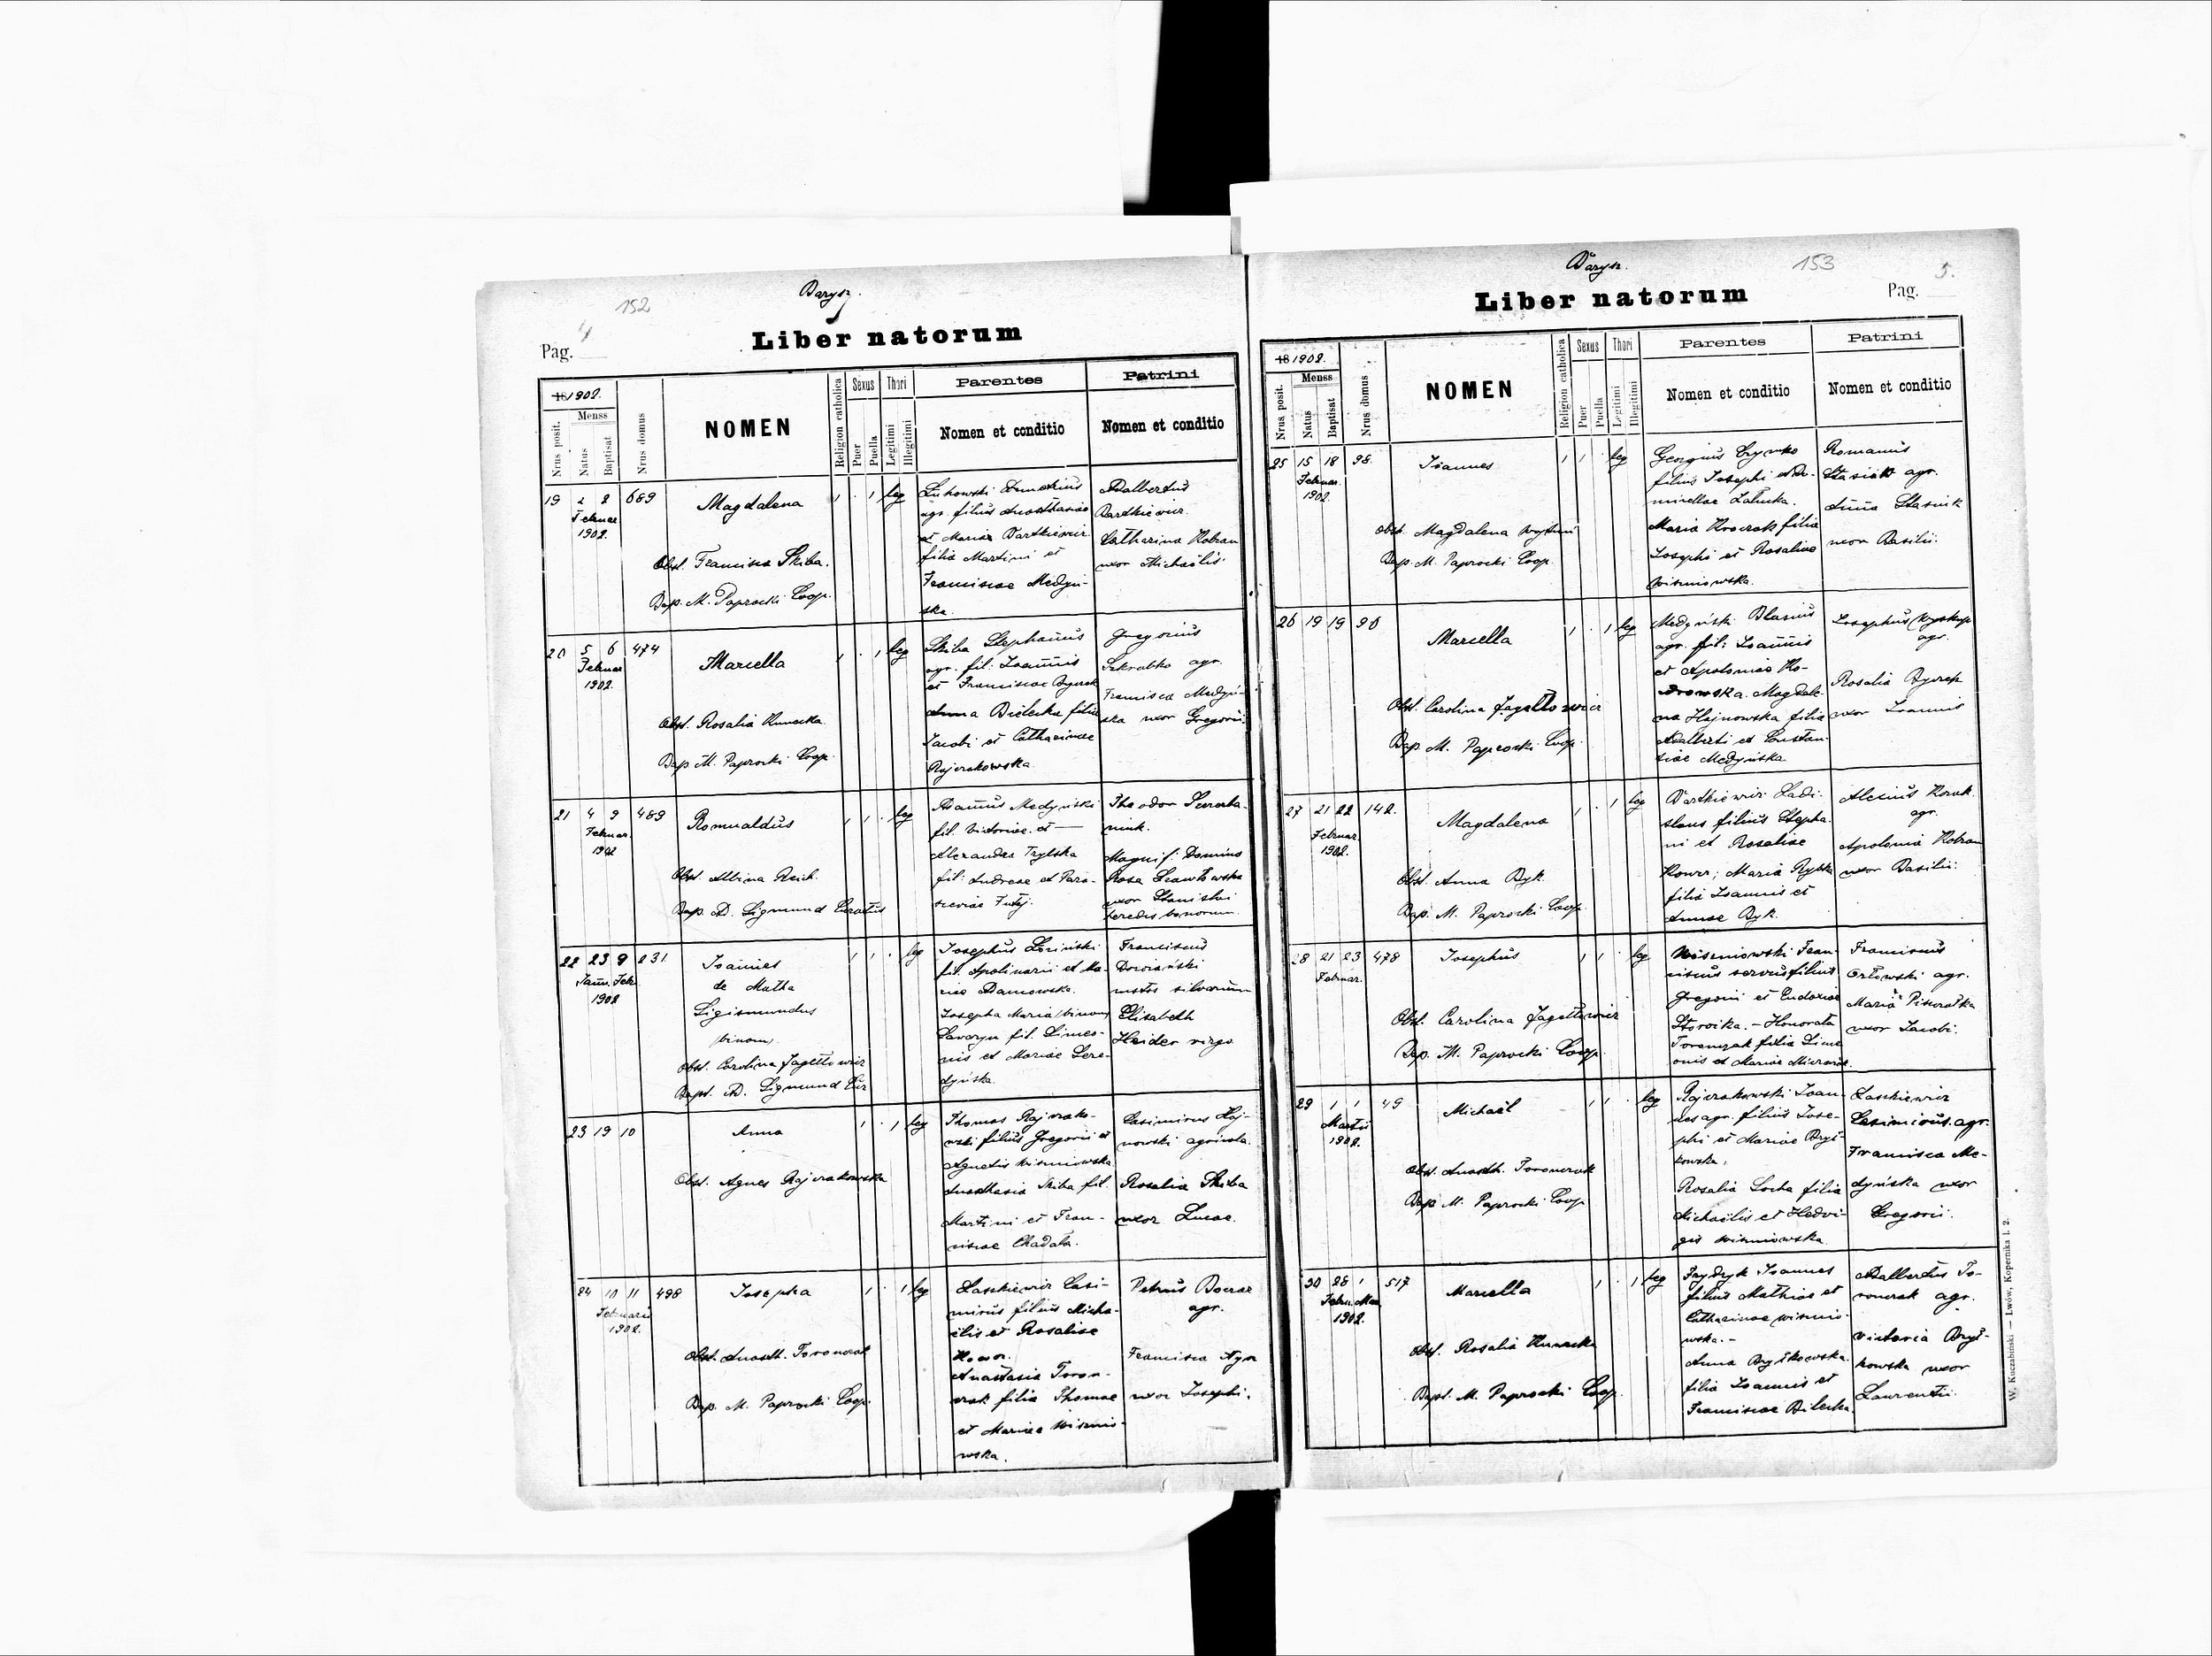 152
Barysz.
Pag. 4
Liber natorum
18 1902.
Menss
Nrus posit.
Natus
Baptisat
Nrus domus
NOMEN
Religion catholica
Sexus
Puer
Puella
Thori
Legitimi
Illegitimi
Parentes
Nomen et conditio
Patrini
Nomen et conditio
19 2 2 689
Februar
1902.
Magdalena
Obst. Francisca Skiba.
Bap. M. Paprocki Coop.
leg
Lukowski Demetrius
agr. filius Anasthasiae
et Mariae Bartkiewicz
filia Martini et
Franciscae Medyń-
ska.
Adalbertus
Bartkiewicz.
Catharina Kobran
uxor Michaëlis.
20 5 6 474
Februar
1902.
Marcella
Obst. Rosalia Kunecka
Bap. M. Paprocki Coop.
leg
Skiba Stephanus
agr. fil: Joannis
et Franciscae
Anna Bielecka filia
Jacobi et Catharinae
Rajczakowska.
Gregorius
Szkrabko agr.
Francisca Medyń-
ska uxor Gregorii.
21 4 9 489
Februar.
1902
Romualdus
Obst. Albina
Bap. D. Sigmund Curatus
leg
Adamus Medyński
fil. Victoriae. et —
Alexandra Trylska
fil: Andreae et Para-
sceviae
Theodor
Magnif: Domina
Rosa
uxor Stanislai
heredis bonorum.
22 23 9 231
Janu. Feb.
1902
Joannes
de Matha
Sigismundus
(binom)
Obst. Carolina Jagiełłowicz
Bapt. D. Sigmund Cur
leg
Josephus Łoziński
fil. Apolinarii et Ma-
riae Adamowska.
Josepha Maria (binom)
Sawaryn fil. Simeo-
nis et Mariae Sere-
dyńska.
Franciscus
silvarum
Elisabeth
Heider virgo
23 19 10
Anna
Obst. Agnes Rajczakowska
leg
Thomas Rajczako-
wski filius Gregorii et
Agnetis Wiśniowska
Anasthasia Skiba fil.
Martini et Fran-
ciscae Chadała.
Casimirus Haj-
nowski agricola.
Rosalia Skiba
uxor Lucae.
24 10 11 498
Februarii
1902.
Josepha
Obst. Anasth. Toronczak
Bap. M. Paprocki Coop.
leg
Laszkiewicz Casi-
mirus filius Micha-
ëlis et Rosaliae
Anastasia Toron-
czak filia Thomae
et Mariae Wiśnio-
wska.
Petrus
agr.
Francisca
uxor Josephi.
Barysz.
153
5.
Liber natorum
Pag.
18 1902.
Menss
Nrus posit.
Natus
Baptisat
Nrus domus
NOMEN
Religion catholica
Sexus
Puer
Puella
Thori
Legitimi
Illegitimi
Parentes
Nomen et conditio
Patrini
Nomen et conditio
25 15 18 98.
Februar.
1902.
Joannes
Obst. Magdalena
Bap. M. Paprocki Coop.
leg
Georgius
filius Josephi et
Maria Kroczak filia
Josephi et Rosaliae
Wiśniowska.
Romanus
Stasiak agr.
Anna Stasiuk
uxor Basilii.
26 19 19 96
Marcella
Obst. Carolina Jagiełłowicz
Bap. M. Paprocki Coop.
leg
Medyński Blasius
agr. fil: Joannis
et Apoloniae Ko-
drowska. Magdale-
na Hajnowska filia
Adalberti et Constan-
tiae Medyńska
Josephus
agr.
Rosalia
uxor Joannis
27 21 22 142.
Februar
1902.
Magdalena
Obst. Anna Byk.
Bap. M. Paprocki Coop.
leg
Bartkiewicz Ladi-
slaus filius Stepha-
ni et Rosaliae
Maria Rybka
filia Joannis et
Annae Byk.
Alexius
agr.
Apolonia Kobran
uxor Basilii.
28 21 23 478
Februar.
Josephus
Obst. Carolina Jagiełłowicz
Bap. M. Paprocki Coop.
leg
Wiśniowski Fran-
ciscus servus filius
Gregorii et Eudoxiae
Honorata
Toronczak filia Sime
onis et Mariae
Franciscus
Orłowski agr.
Maria
uxor Jacobi.
29 1 1 49
Martii
1902.
Michaël
Obst. Anasth. Toronczak
Bap. M. Paprocki Coop
leg
Rajczakowski Joan-
nes agr. filius Jose-
phi et Mariae Bryt-
kowska.
Rosalia Socha filia
Michaëlis et Hedvi-
gis Wiśniowska.
Laszkiewicz
Casimirus. agr.
Francisca Me-
dyńska uxor
Gregorii.
30 28 1 517
Febru. Mar.
1902.
Marcella
Obst. Rosalia Kunecka
Bapt. M. Paprocki Coop.
leg
Frydryk Joannes
filius Mathiae et
Catharinae Wiśnio-
wska.—
Anna Brytkowska.
filia Joannis et
Franciscae Bilecka.
Adalbertus To-
ronczak agr.
Victoria Bryt-
kowska uxor
Laurentii.
W. Kuczabiński — Lwów, Kopernika l. 2.